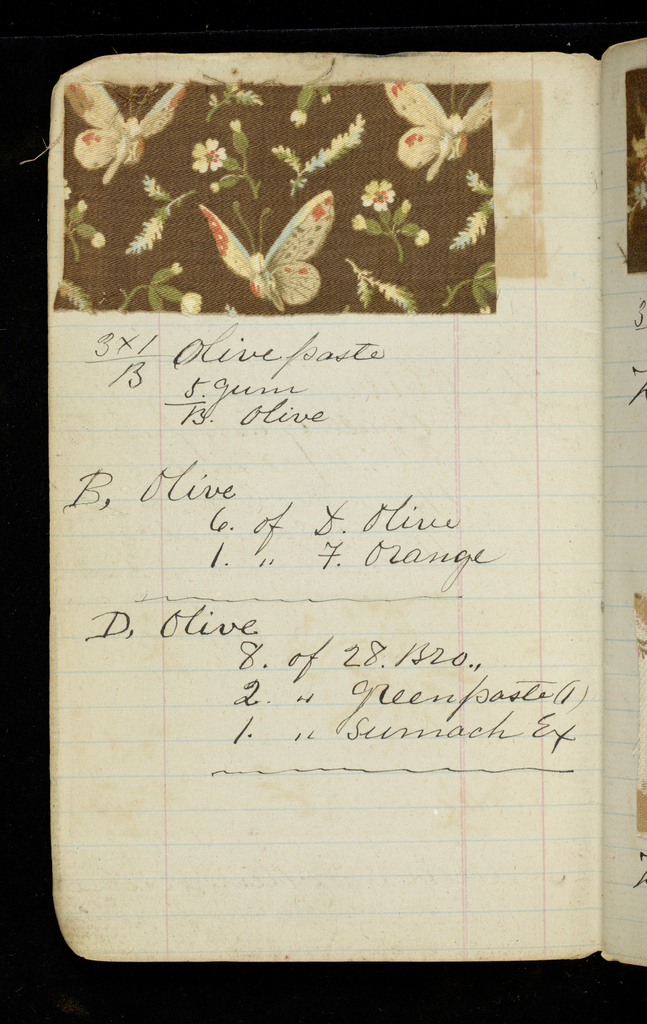 3x1/B Olive paste
5. gum
B. Olive
B, Olive
6. of D. Olive
1. " 7. Orange
D, Olive
8. of 28. Bro.,
2. " green paste (1)
1. " Sumach Ex